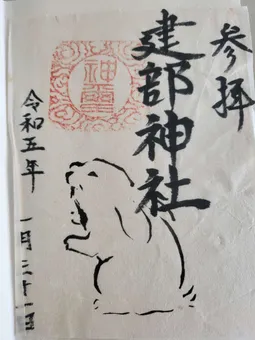 参拝
建部神社
令和五年
一月三十一日